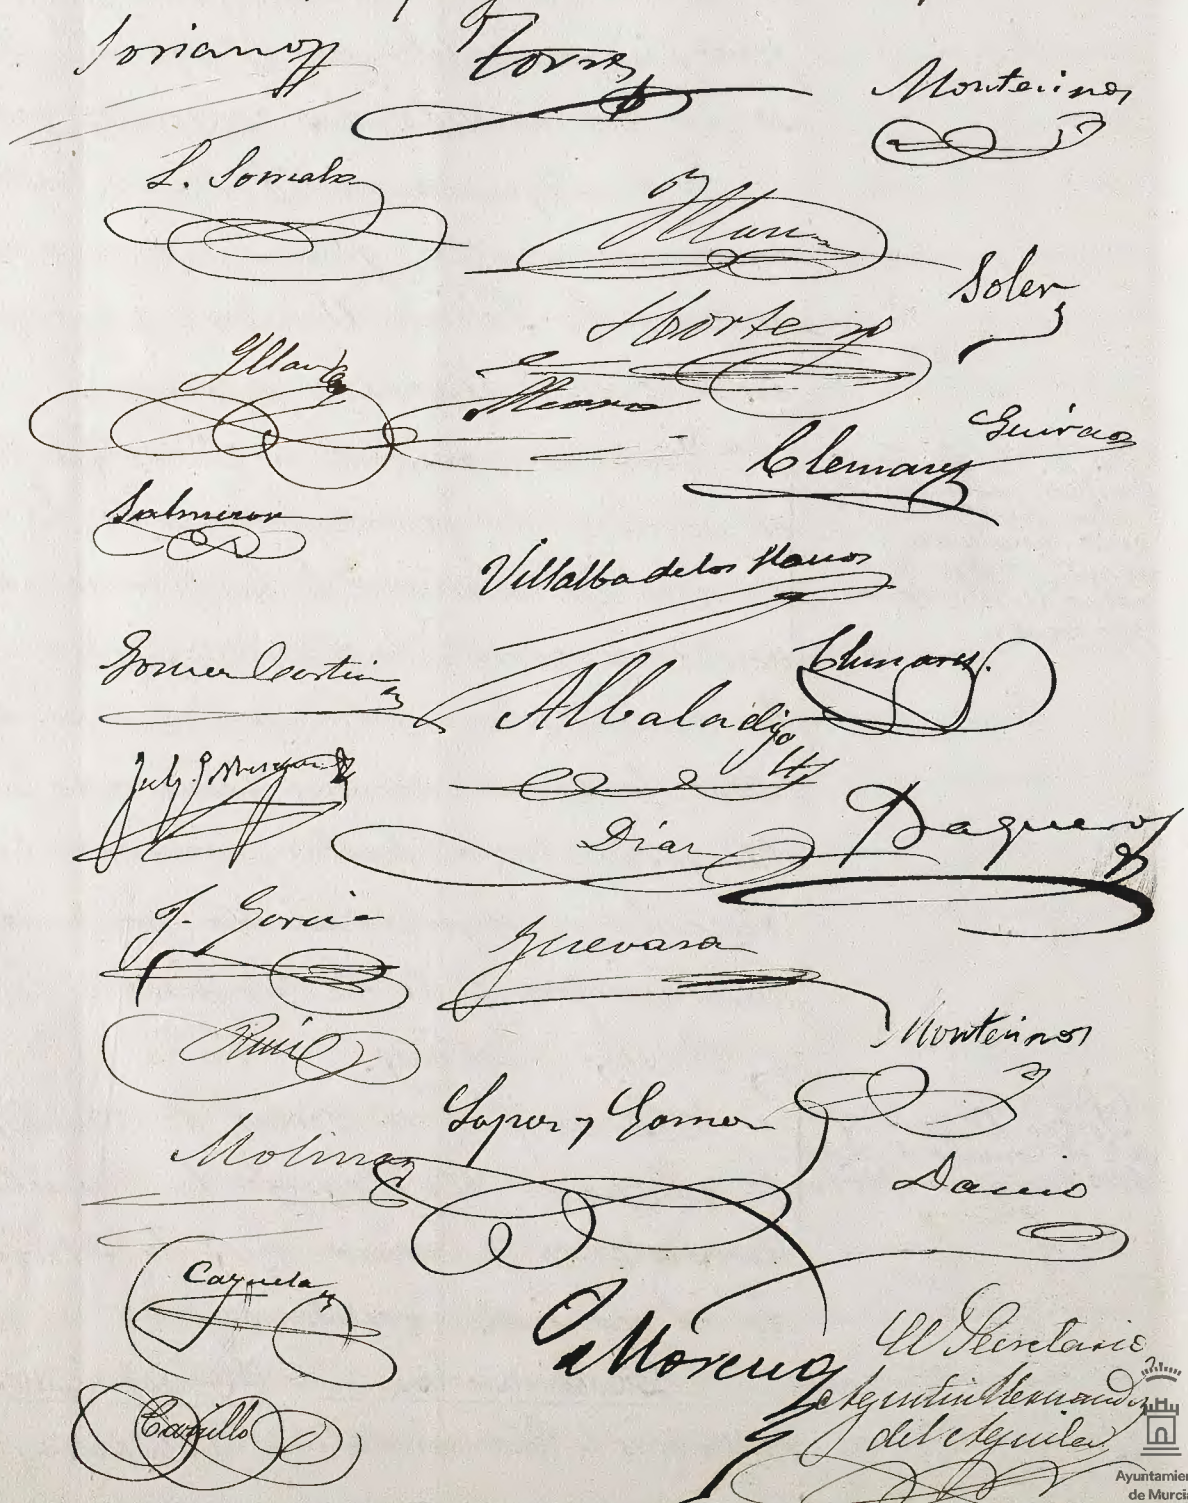 Soriano
Torres
Montesinos
Soler
Hortenjo
Illan
Guirao
Clemares
Salmeron
Villalba de los Llanos
Gomez Cortina
Clemares.
Albaladejo
Diaz
Baquero
J. Garcia
Guevara
Ruiz
Montesinos
Lopez y Gomez
Molina
Danio
Cayuela
Moreno
El Secretario
Agustin Hernandez
del Aguila
Carrillo
Ayuntamien
de Murcia